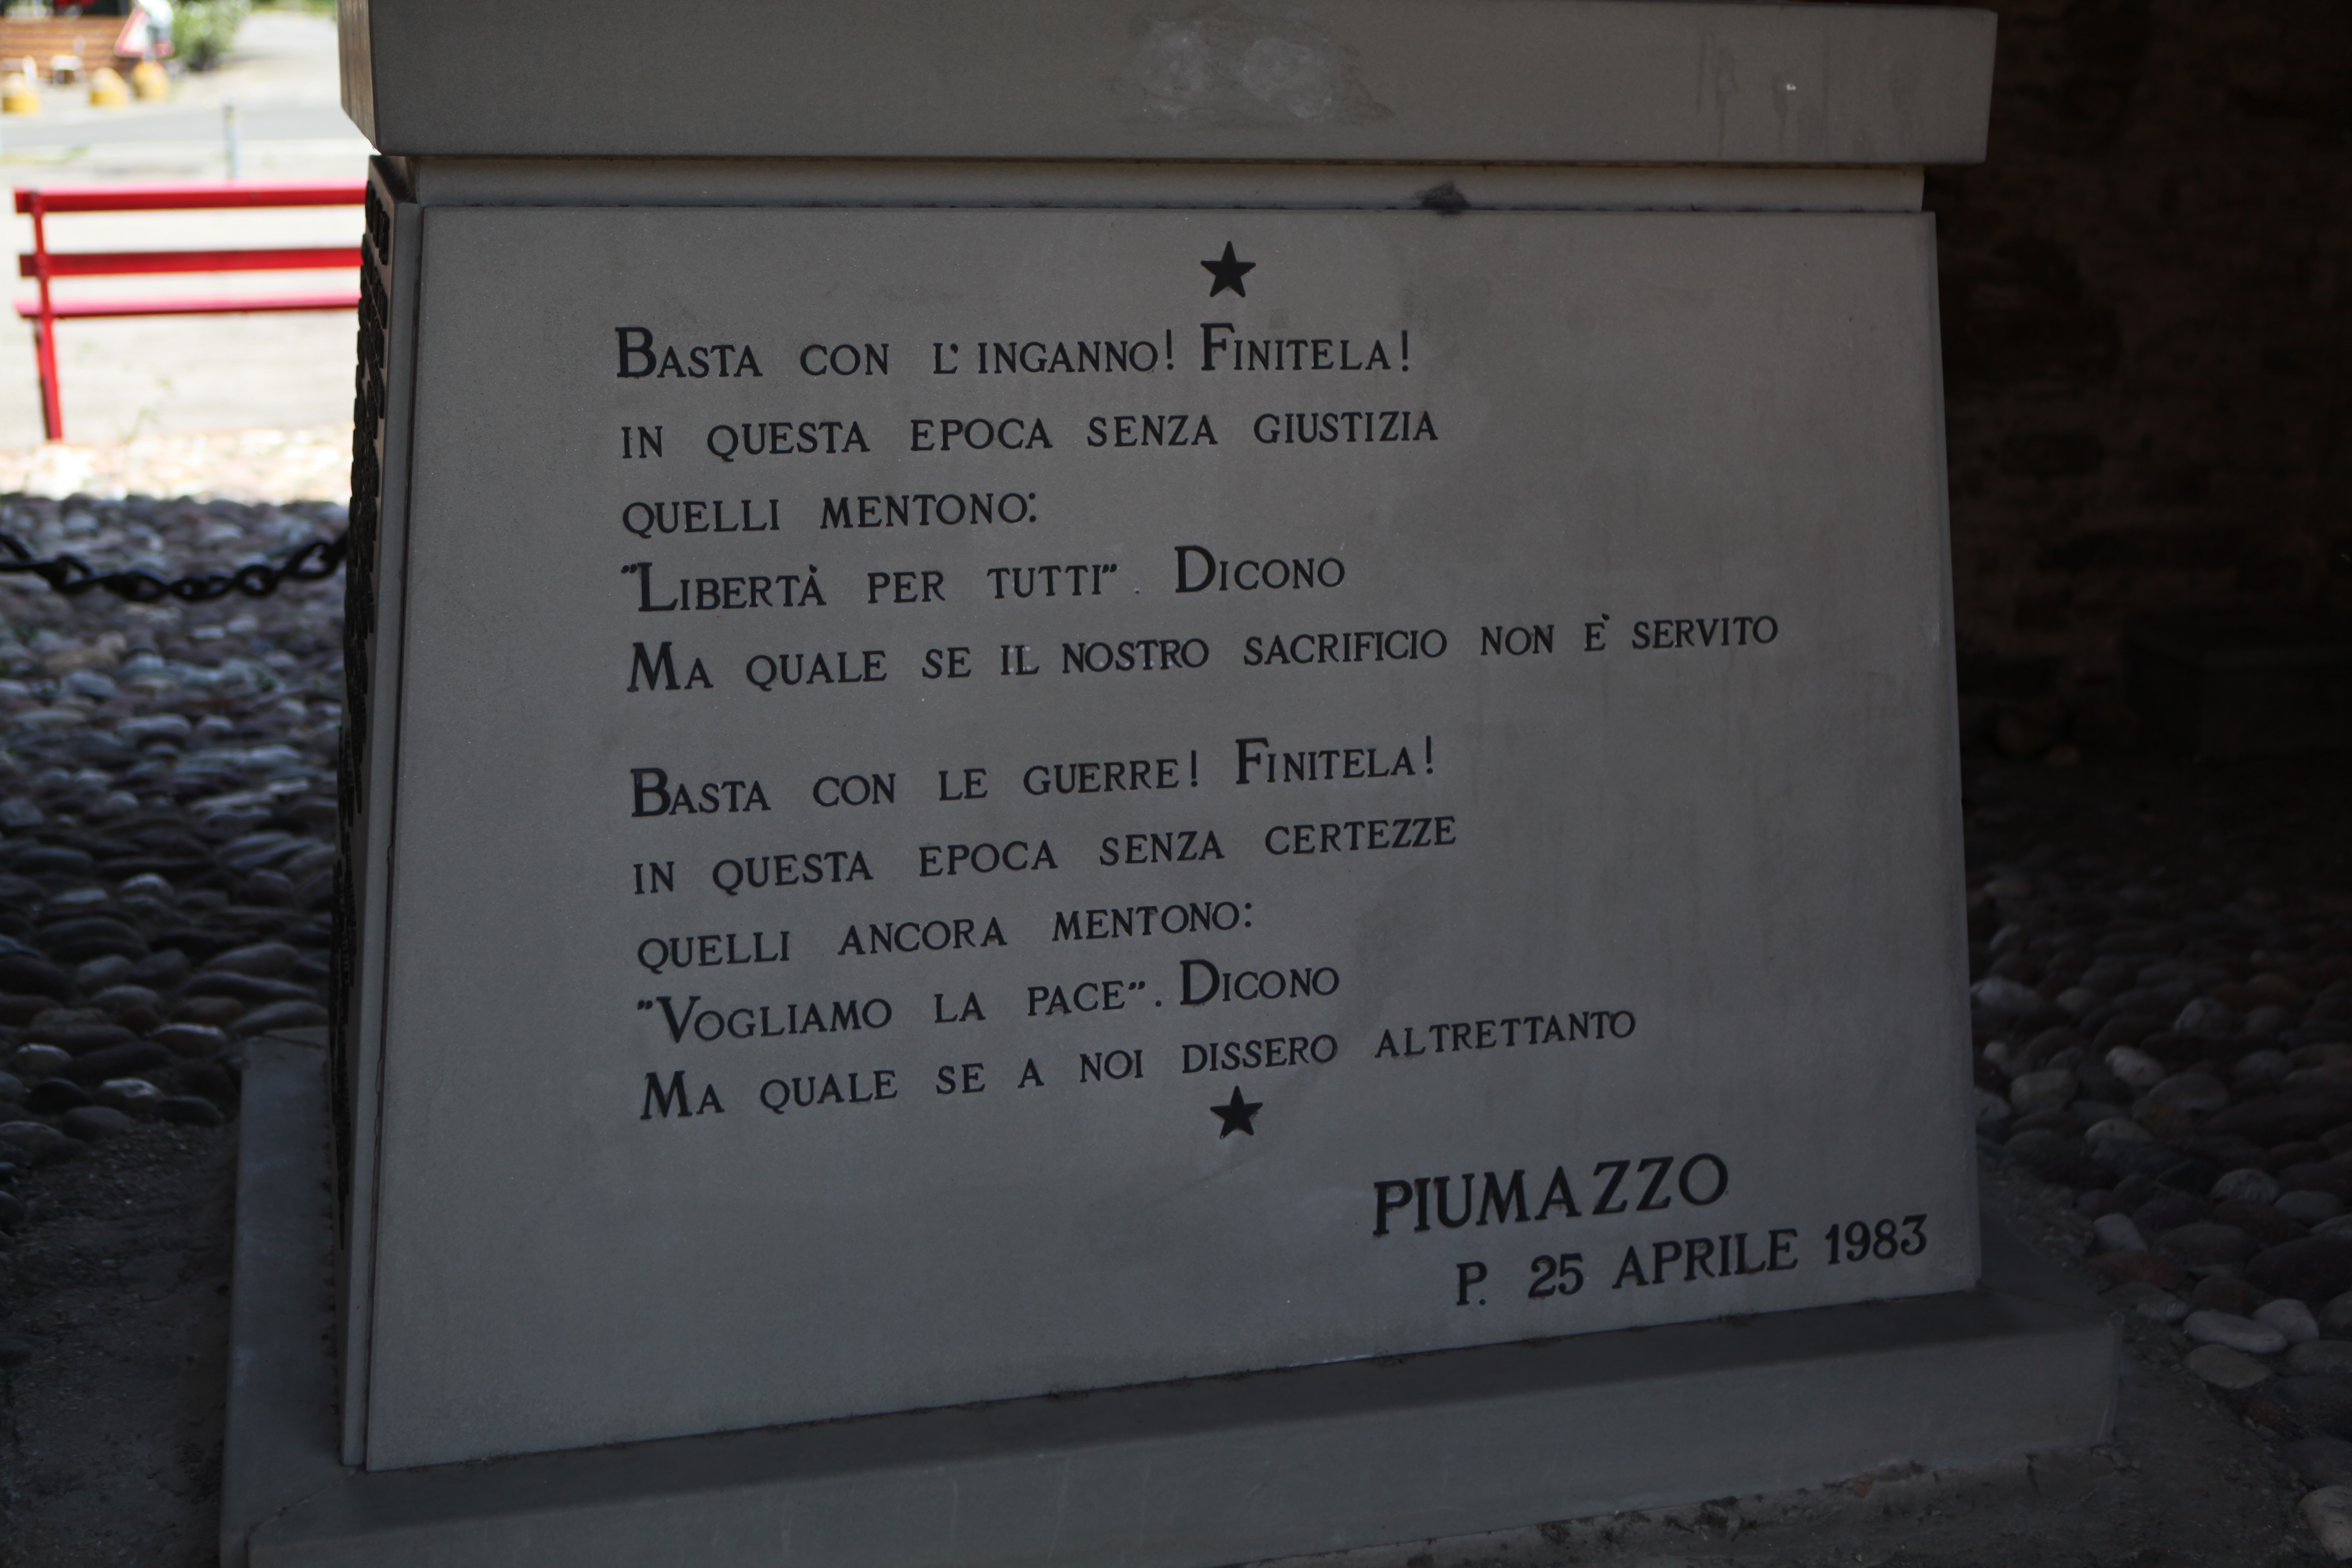 BASTA CON L' INGANNO! FINITELA!
IN QUESTA EPOCA SENZA GIUSTIZIA
QUELLI MENTONO:
"LIBERTÀ PER TUTTI". DICONO
MA QUALE SE IL NOSTRO SACRIFICIO NON E' SERVITO
BASTA CON LE GUERRE! FINITELA!
IN QUESTA EPOCA SENZA CERTEZZE
QUELLI ANCORA MENTONO:
"VOGLIAMO LA PACE". DICONO
MA QUALE SE A NOI DISSERO ALTRETTANTO
PIUMAZZO
P. 25 APRILE 1983